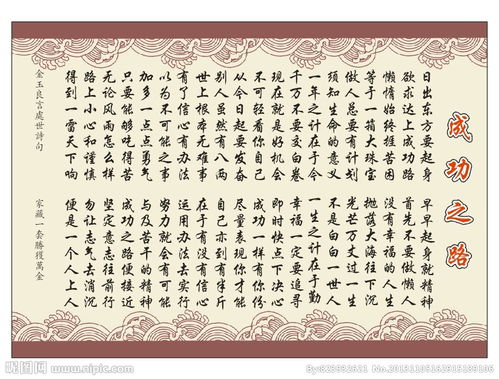 成功之路
日出东方要起身 早早起身就精神
欲求达上成功路 首先不要做懒人
懒惰始终捱苦困 没有幸福的人生
等于一箱大珠宝 抛落大海往下沉
做人总要有计划 光芒万丈过一生
须知生命的意义 不是白白一世人
一年之计在于今 一生之计在于勤
千万不要交白卷 幸福一定要追寻
现在就是好机会 即时快点下决心
不可轻看你自己 成功一样有你份
从今日起要发奋 尽量表现你才能
别人虽然有八两 自己亦到有半斤
世上根本无难事 在于有没有信心
有了信心有办法 运用办法去实行
以为不可能之事 努力就会有可能
加多一点点勇气 与及苦干的精神
只要能够吃得苦 成功之路便接近
无论风雨怎么样 坚定意志往前行
路上小心和谨慎 勿让志气去消沉
得到一雷天下响 便是一个人上人
金玉良言處世詩句 家藏一套勝獲萬金
昵图网 www.nipic.com